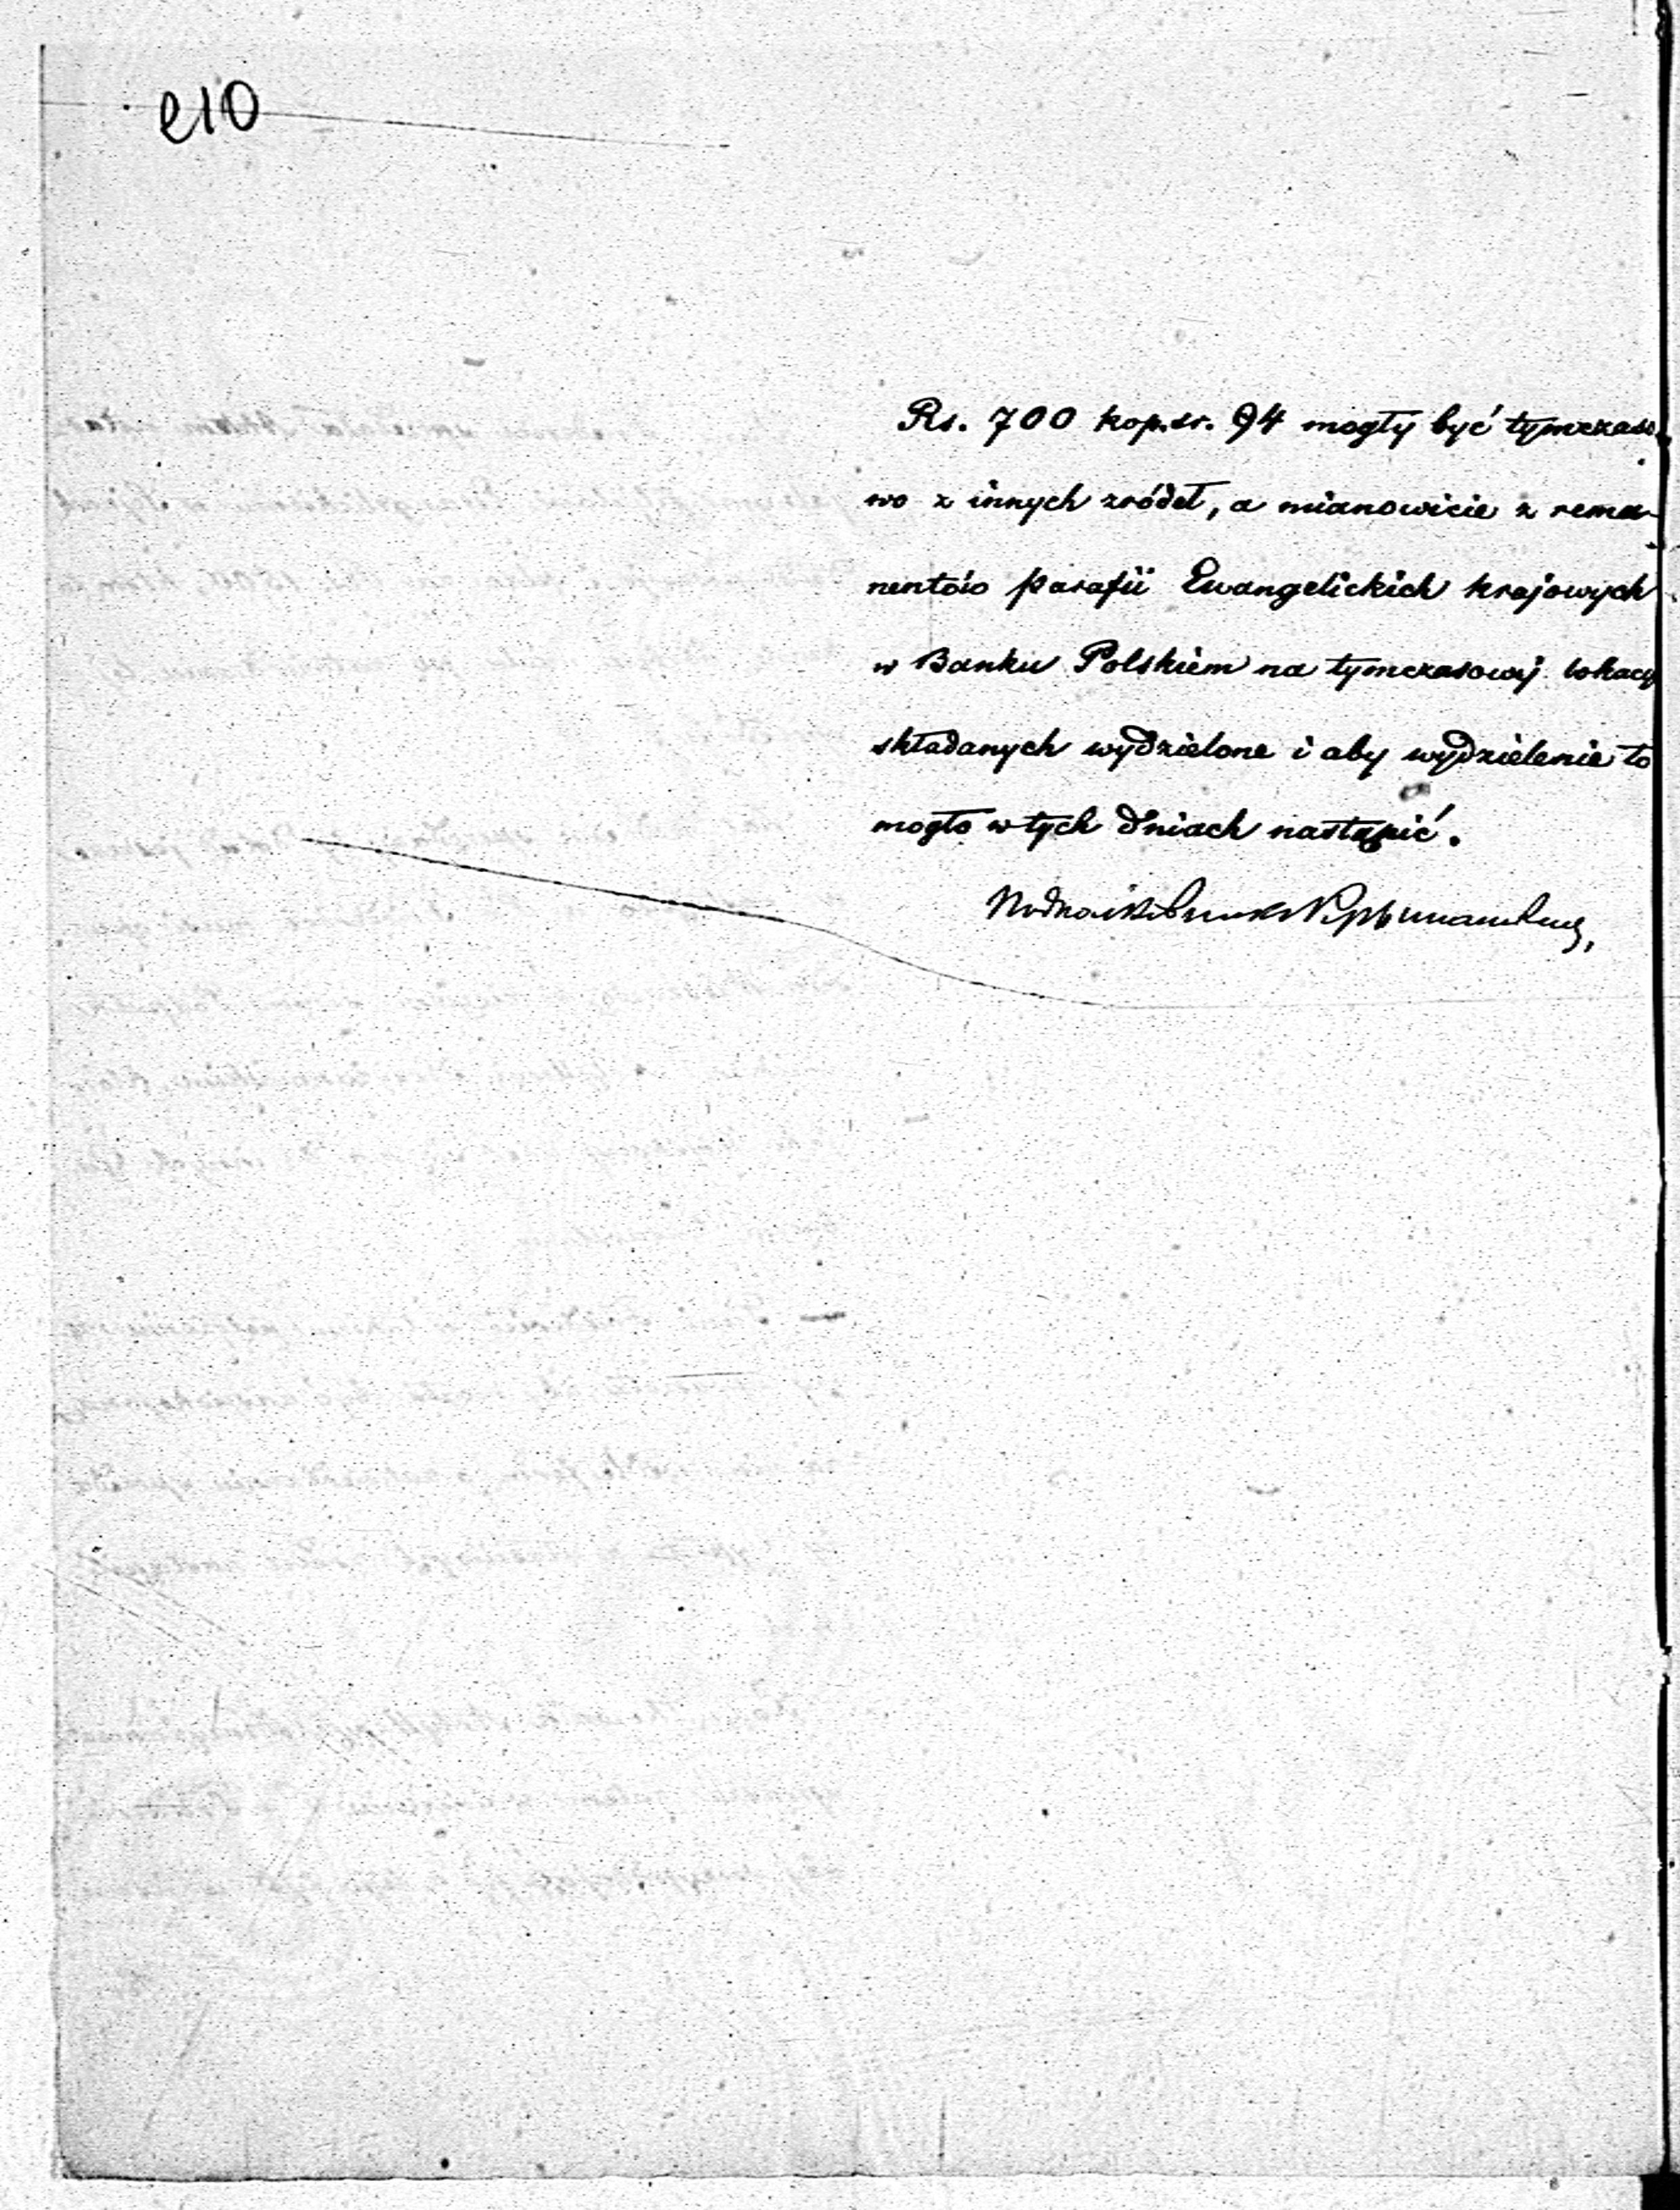 210
Rs. 700 kop. sr. 94 mogły być tymczaso-
wo z innych zródeł, a mianowicie z rema-
nentów parafii Ewangelickich krajowych
w Banku Polskiem na tymczasowéj lokacyi
składanych wydzielone i aby wydzielenie to
mogło w tych dniach nastąpić.